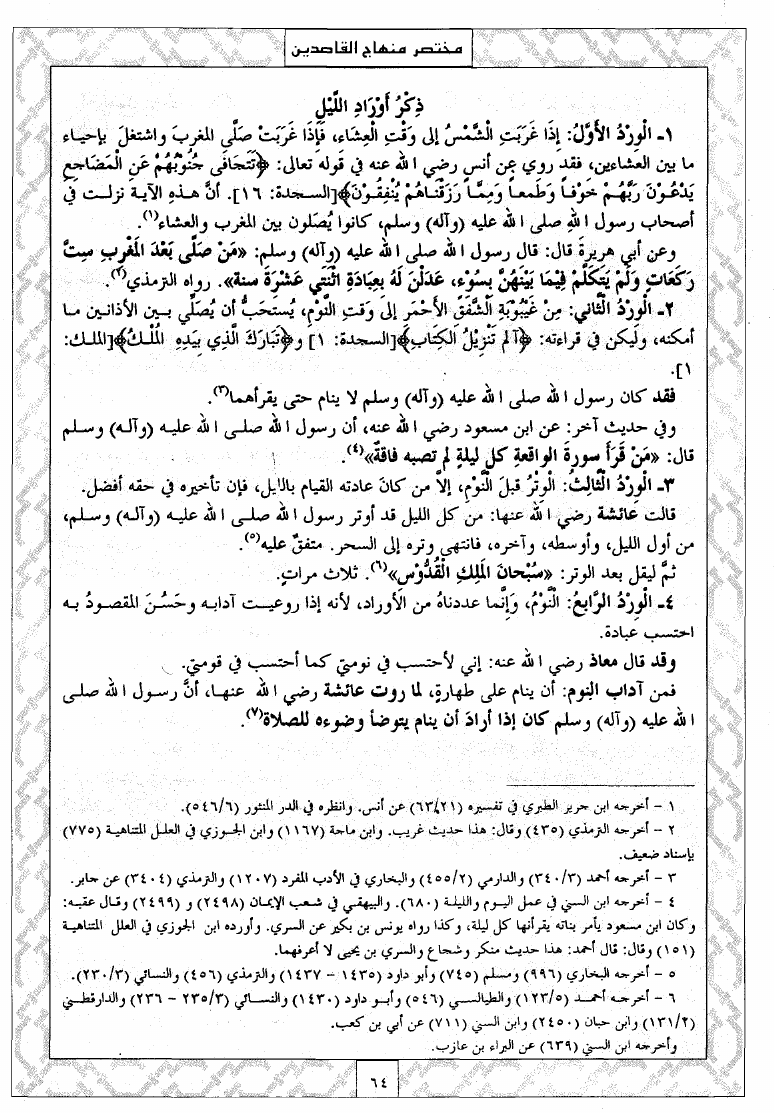 مختصر منهاج القاصدين
ذِكْرُ أَوْرَادِ اللَّيْلِ
١ـ الْوِرْدُ الأَوَّلُ: إِذَا غَرَبَتِ الشَّمْسُ إلى وَقْتِ الْعِشَاء، فَإِذَا غَرَبَتْ صَلَّى المغربَ واشتغلَ بإحياء
ما بين العشاءين، فقد روي عن أنس رضي الله عنه في قوله تعالى: ﴿تَتَجَافَى جُنُوبُهُمْ عَنِ الْمَضَاجِعِ
يَدْعُونَ رَبَّهُمْ خَوْفاً وَطَمعاً وَمِمَّا رَزَقْنَاهُمْ يُنْفِقُونَ﴾[السجدة: ١٦]. أنَّ هذهِ الآية نزلت في
أصحاب رسول اللهِ صلى الله عليه (وآله) وسلم، كانوا يُصَلون بين المغرب والعشاء(١).
وعن أبي هريرةَ قال: قال رسول الله صلى الله عليه (وآله) وسلم: «مَنْ صَلَّى بَعْدَ المَغْربِ سِتَّ
رَكَعَاتٍ وَلَمْ يَتَكَلَّمْ فِيمَا بَيْنَهُنَّ بِسُوْء، عَدَلْنَ لَهُ بِعِبَادَةِ اثْنَتَي عَشْرَةَ سنة». رواه الترمذي(٢).
٢ـ الْوِرْدُ الثَّاني: مِنْ غَيْبُوبَةِ الشَّفَقِ الأَحْمَرِ إلى وَقتِ النَّوْمِ، يُستحَبُّ أن يُصَلِّي بين الأذانين ما
أمكنه، وليكن في قراءته: ﴿آلم تَنْزِيْلُ الكِتَابِ﴾[السجدة: ١] و﴿تَبَارَكَ الَّذي بِيَدِهِ الْمُلْكُ﴾[الملك:
١].
فقد كان رسول الله صلى الله عليه (وآله) وسلم لا ينام حتى يقرأهما(٣).
وفي حديث آخر: عن ابن مسعود رضي الله عنه، أن رسول الله صلى الله عليه (وآله) وسلم
قال: «مَنْ قَرَأَ سورةَ الواقعةِ كل ليلةٍ لم تصبه فاقةٌ»(٤).
٣ـ الْوِرْدُ الثَّالِثُ: الْوِتْرُ قبلَ النَّوْمِ، إلاَّ من كانَ عادته القيام بالليل، فإن تأخيره في حقه أفضل.
قالت عائشة رضي الله عنها: من كل الليل قد أوتر رسول الله صلى الله عليه (وآله) وسلم،
من أول الليل، وأوسطه، وآخره، فانتهى وتره إلى السحر. متفقٌ عليه(٥).
ثمَّ ليقل بعد الوتر: «سُبْحانَ المَلِكِ الْقُدُّوْسِ»(٦). ثلاث مراتٍ.
٤ـ الْوِرْدُ الرَّابِعُ: النَّوْمُ، وَإنَّما عددناهُ من الأوراد، لأنه إذا روعيت آدابه وحَسُنَ المقصودُ به
احتسب عبادة.
وقد قال معاذ رضي الله عنه: إني لأحتسب في نومتي كما أحتسب في قومتي.
فمن آداب النوم: أن ينام على طهارةٍ، لما روت عائشة رضي الله عنها، أنَّ رسول الله صلى
الله عليه (وآله) وسلم كان إذا أرادَ أن ينام يتوضأ وضوءه للصلاة(٧).
١ – أخرجه ابن جرير الطبري في تفسيره (٦٣/٢١) عن أنس. وانظره في الدر المنثور (٥٤٦/٦).
٢ – أخرجه الترمذي (٤٣٥) وقال: هذا حديث غريب. وابن ماجة (١١٦٧) وابن الجوزي في العلل المتناهية (٧٧٥)
بإسناد ضعيف.
٣ – أخرجه أحمد (٣٤٠/٣) والدارمي (٤٥٥/٢) والبخاري في الأدب المفرد (١٢٠٧) والترمذي (٣٤٠٤) عن جابر.
٤ – أخرجه ابن السني في عمل اليوم والليلة (٦٨٠). والبيهقي في شعب الإيمان (٢٤٩٨) و (٢٤٩٩) وقال عقبه:
وكان ابن مسعود يأمر بناته يقرأنها كل ليلة، وكذا رواه يونس بن بكير عن السري. وأورده ابن الجوزي في العلل المتناهية
(١٥١) وقال: قال أحمد: هذا حديث منكر وشجاع والسري بن يحيى لا أعرفهما.
٥ – أخرجه البخاري (٩٩٦) ومسلم (٧٤٥) وأبو داود (١٤٣٥ – ١٤٣٧) والترمذي (٤٥٦) والنسائي (٢٣٠/٣).
٦ – أخرجه أحمد (١٢٣/٥) والطيالسي (٥٤٦) وأبو داود (١٤٣٠) والنسائي (٢٣٥/٣ – ٢٣٦) والدارقطني
(١٣١/٢) وابن حبان (٢٤٥٠) وابن السني (٧١١) عن أبي بن كعب.
وأخرجه ابن السني (٦٣٩) عن البراء بن عازب.
٦٤